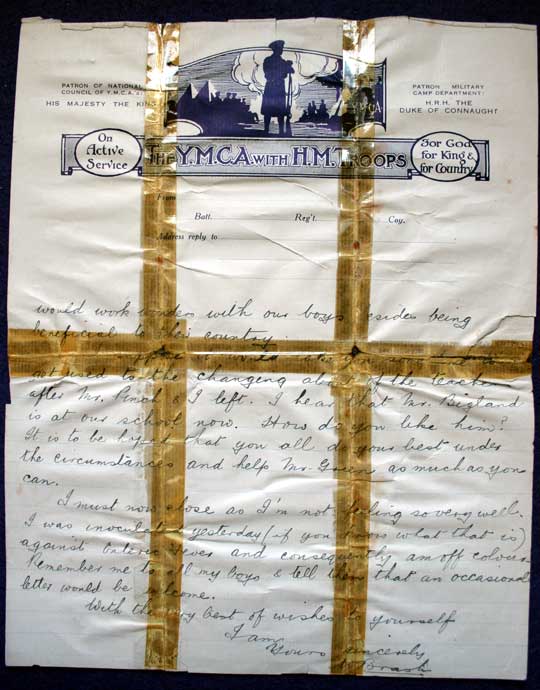 PATRON OF NATIONAL
COUNCIL OF Y.M.C.A.'s
HIS MAJESTY THE KING
PATRON MILITARY
CAMP DEPARTMENT:
H.R.H. THE
DUKE OF CONNAUGHT
Y.M.C.A
On
Active
Service
THE Y.M.C.A. WITH H.M. TROOPS
For God
for King &
for Country
From
Batt. Reg't. Coy.
Address reply to
would work wonders with our boys besides being
beneficial to their country.
I would
got used to the changing about of the teachers
after Mr. Pinch & I left. I hear that Mr. Bigland
is at our school now. How do you like him?
It is to be hoped that you all do your best under
the circumstances and help Mr. Green as much as you
can.
I must now close as I'm not feeling so very well.
I was inoculated yesterday (if you know what that is)
against Enteric fever and consequently am off colour.
Remember me to all my boys & tell them that an occasional
letter would be welcome.
With the very best of wishes to yourself
I am
Yours sincerely
Brash